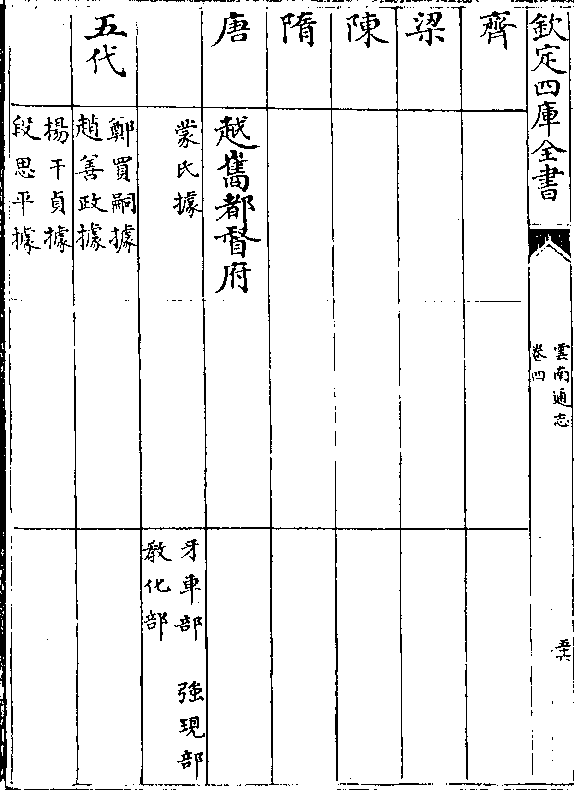 欽定四庫全書
雲南通志
卷四
五十六
齊
梁
陳
隋
唐
越巂都督府
蒙氏據
牙車部 強現部
教化部
五代
鄭買嗣據
趙善政據
楊干貞據
段思平據